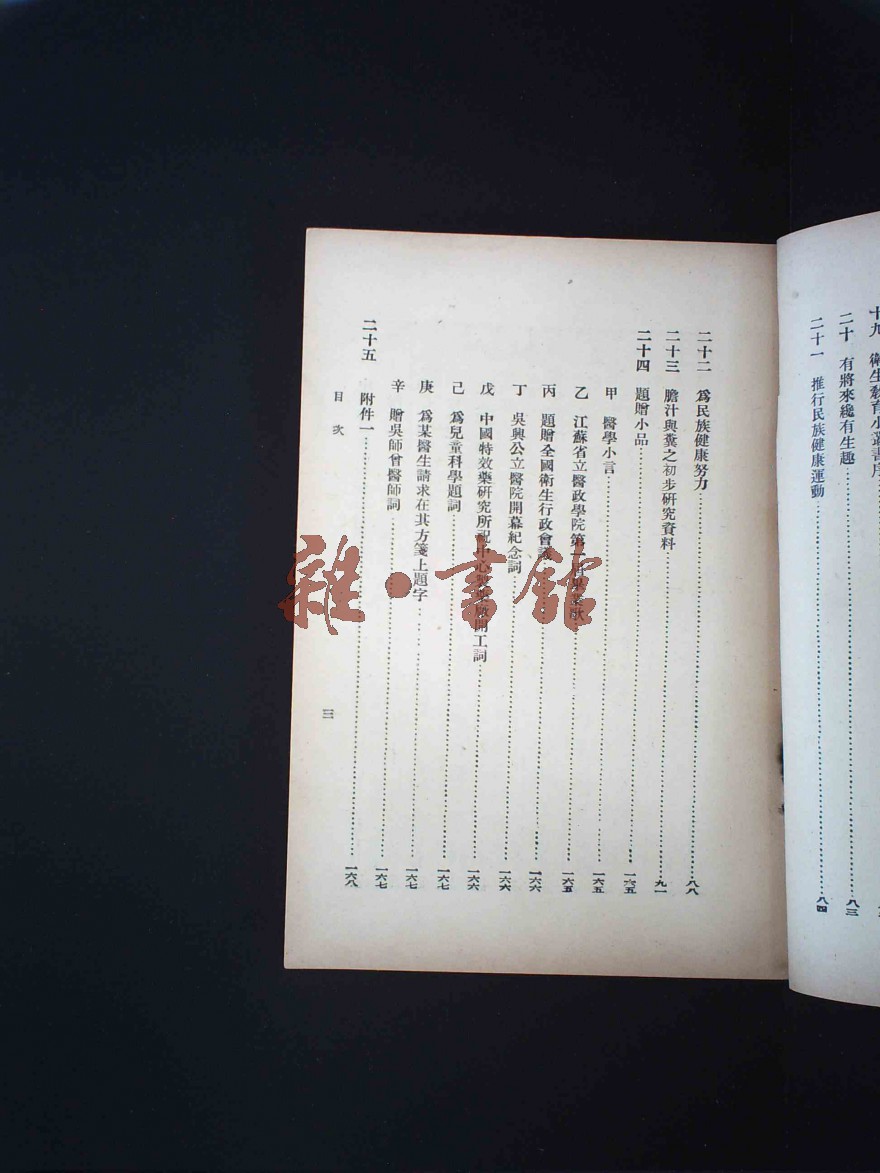 十九 衛生敎育小叢書序
二十 有將來纔有生趣……八三
二十一 推行民族健康運動……八四
二十二 爲民族健康努力……八八
二十三 膽汁與糞之初步研究資料……九一
二十四 題贈小品……一六五
甲 醫學小言……一六五
乙 江蘇省立醫政學院第一屆畢業歌……一六五
丙 題贈全國衛生行政會議……一六六
丁 吳興公立醫院開幕紀念詞……一六六
戊 中國特效藥研究所祝中心製藥廠開工詞……一六六
己 爲兒童科學題詞……一六七
庚 爲某醫生請求在其方箋上題字……一六七
辛 贈吳師曾醫師詞……一六七
二十五 附件一……一六八
目次
三
雜·書館